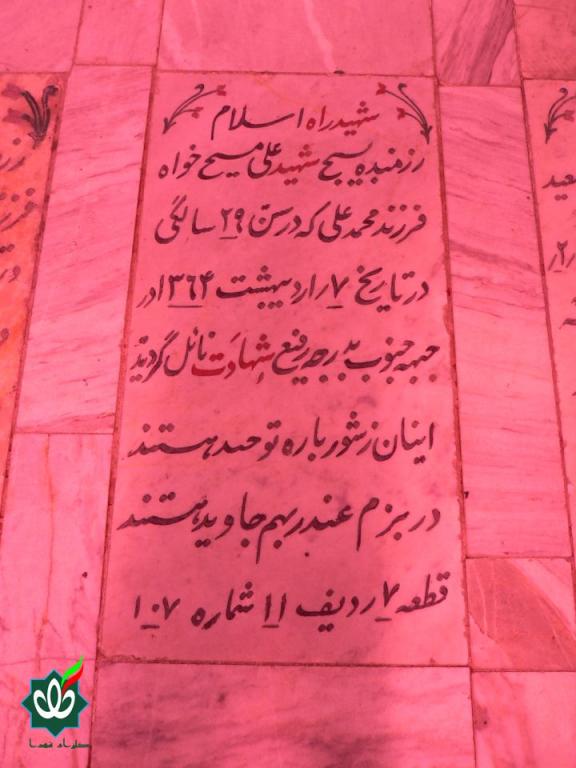 شهید راه اسلام
رزمنده بسیج شهید علی مسیح خواه
فرزند محمد علی که در سن ۲۹ سالگی
در تاریخ ۷ ار اردیبهشت ۱۳۶۴ در
جبهه جنوب بدرجه رفیع شهادت نائل گردید
اینان ز شور باره توحید هستند
در بزم عند ربهم جاوید هستند
قطعه ۷ ردیف ۱۱ شماره ۱۰۷
گلزار شهدا